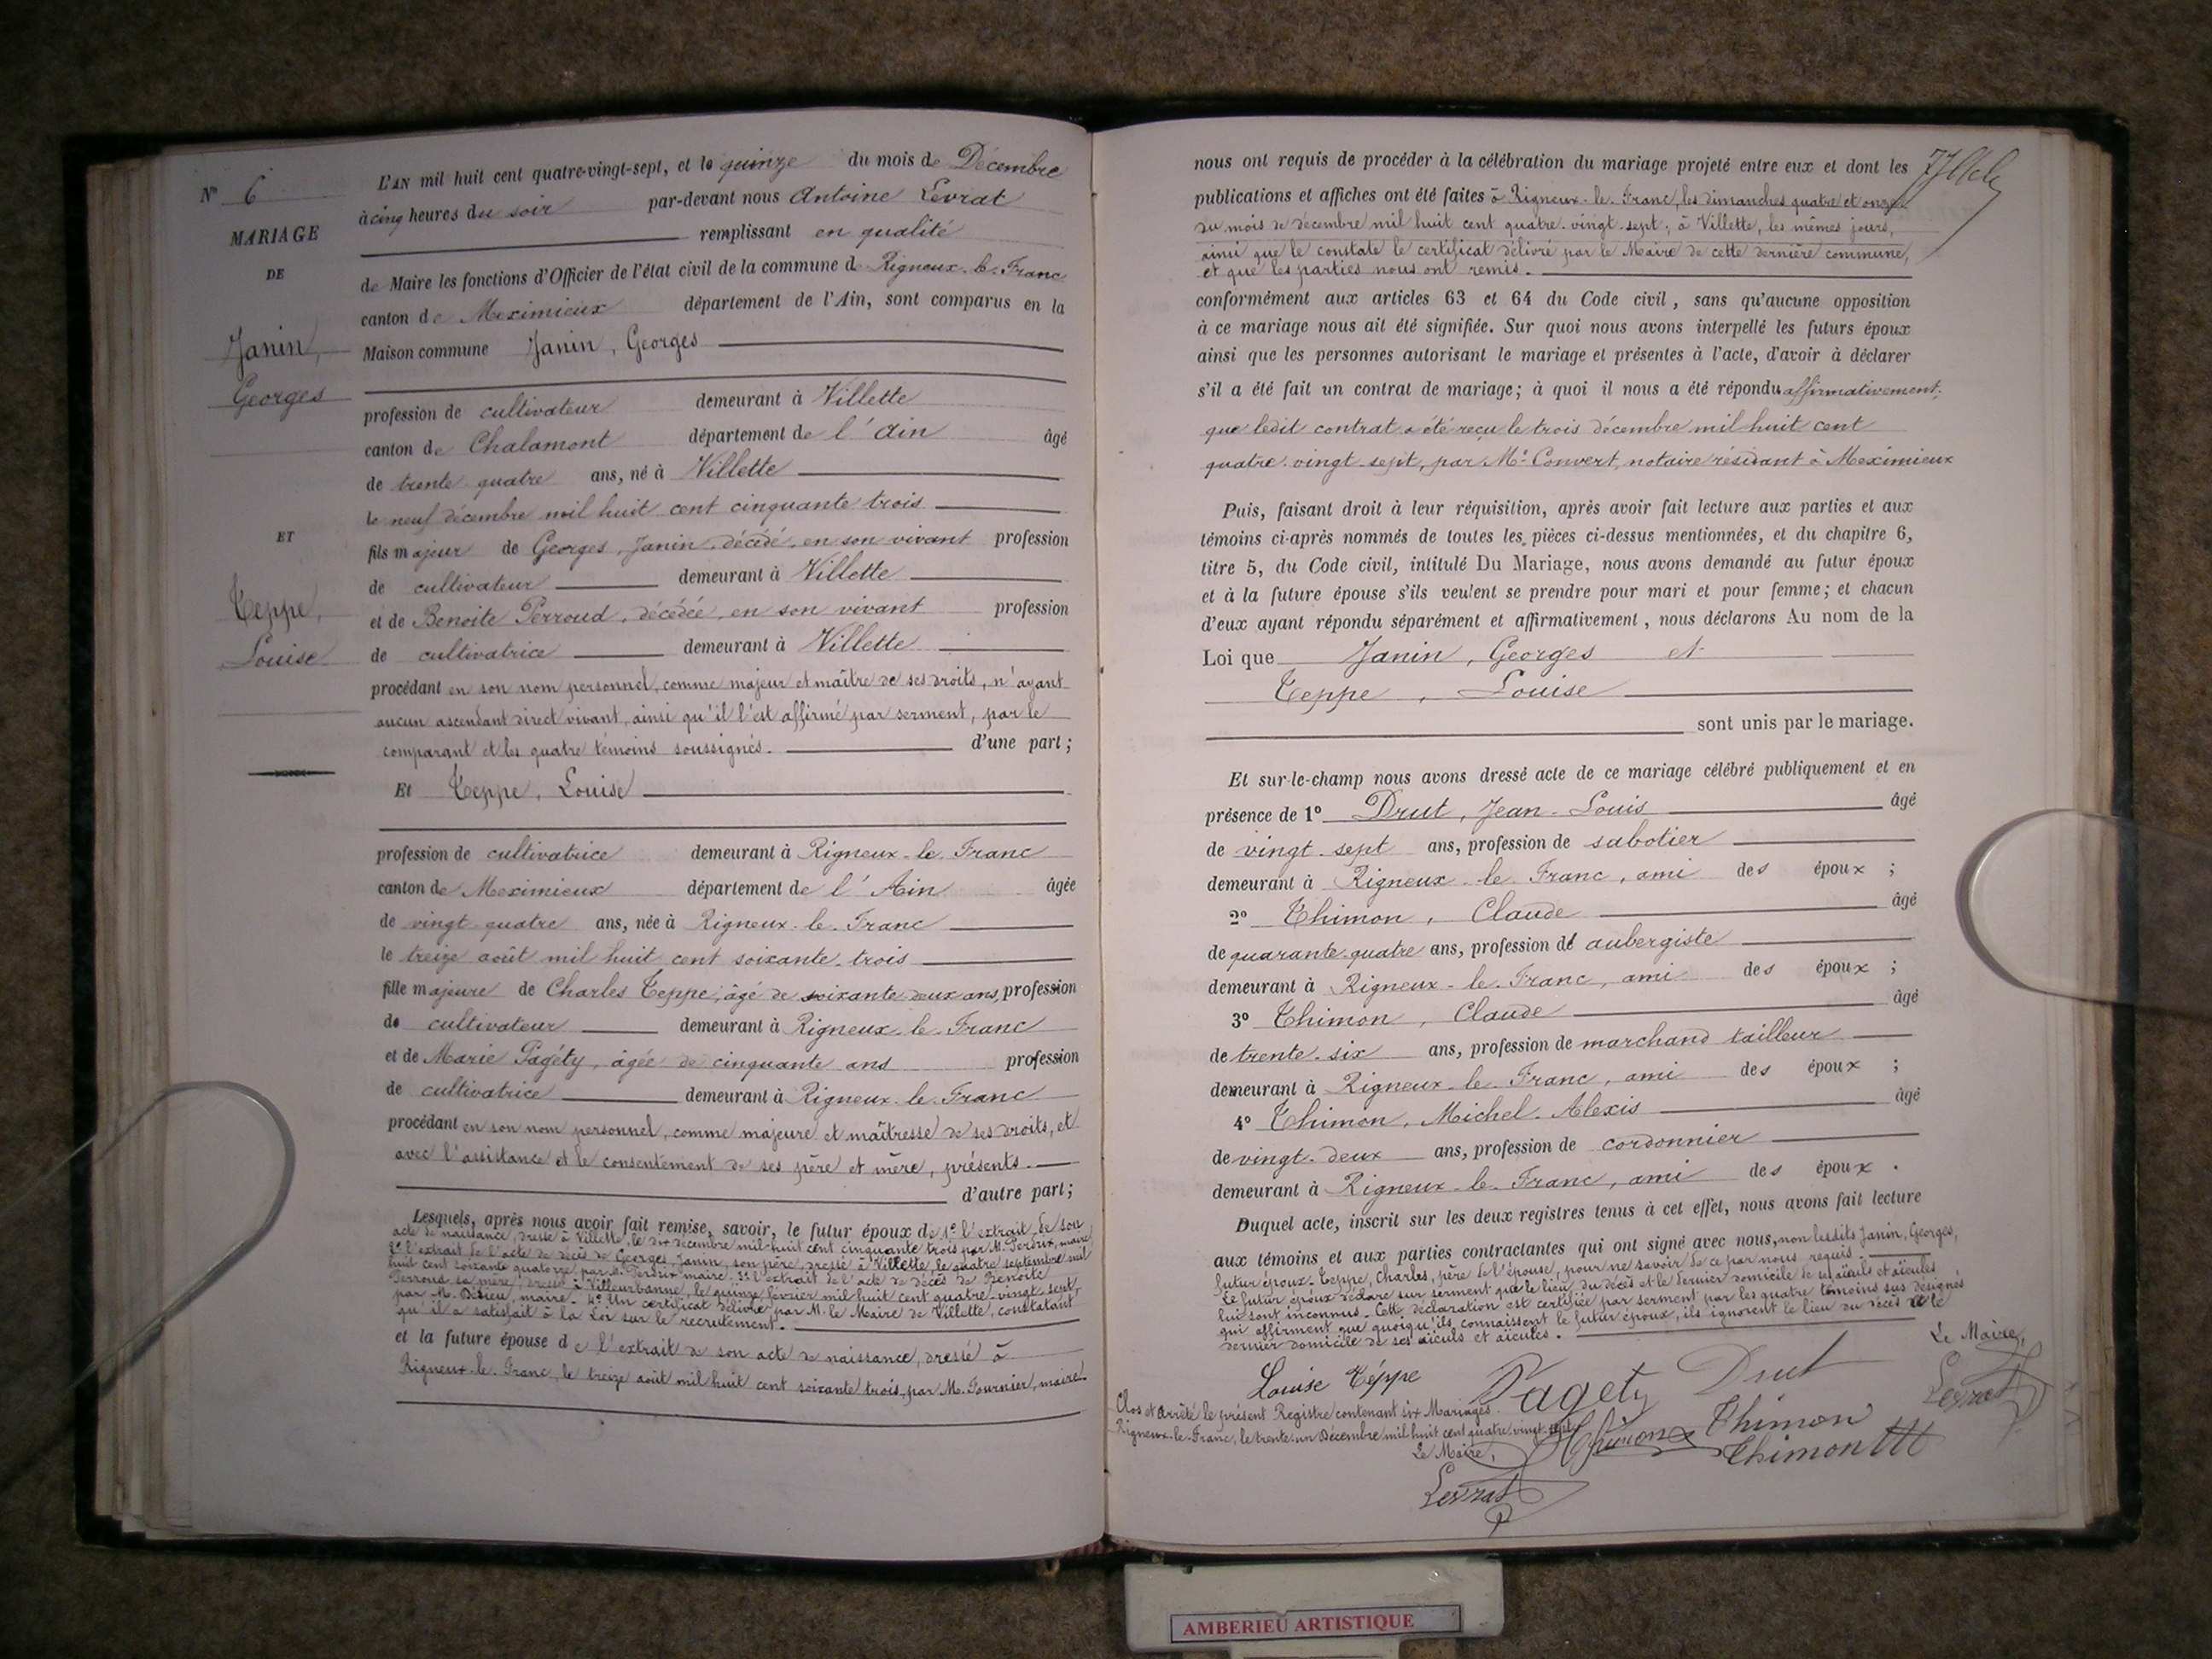 N° 6
MARIAGE
DE
Janin,
Georges
ET
Teppe,
Louise
L'AN mil huit cent quatre-vingt-sept, et le quinze du mois de Décembre
à cinq heures du soir par-devant nous Antoine Levrat
remplissant en qualité
de Maire les fonctions d'Officier de l'état civil de la commune de Rigneux-le-Franc
canton de Meximieux département de l'Ain, sont comparus en la
Maison commune Janin, Georges
profession de cultivateur demeurant à Villette
canton de Chalamont département de l'Ain âgé
de trente quatre ans, né à Villette
le neuf décembre mil huit cent cinquante trois
fils majeur de Georges, Janin, décédé, en son vivant profession
de cultivateur demeurant à Villette
et de Benoite Perroud, décédée, en son vivant profession
de cultivatrice demeurant à Villette
procédant en son nom personnel, comme majeur et maître de ses droits, n'ayant
aucun ascendant direct vivant, ainsi qu'il l'est affirmé par serment, par le
comparant et les quatre témoins soussignés. d'une part;
Et Teppe, Louise
profession de cultivatrice demeurant à Rigneux-le-Franc
canton de Meximieux département de l'Ain âgée
de vingt quatre ans, née à Rigneux-le-Franc
le treize août mil huit cent soixante-trois
fille majeure de Charles Teppe, âgé de soixante deux ans, profession
de cultivateur demeurant à Rigneux-le-Franc
et de Marie Pagéty, âgée de cinquante ans profession
de cultivatrice demeurant à Rigneux-le-Franc
procédant en son nom personnel, comme majeure et maîtresse de ses droits, et
avec l'assistance et le consentement de ses père et mère, présents.
d'autre part;
Lesquels, après nous avoir fait remise, savoir, le futur époux de 1° l'extrait de son
acte de naissance, dressé à Villette, le dix décembre mil-huit cent cinquante trois par M. Perdrix, maire
2° l'extrait de l'acte de décès de Georges Janin, son père, dressé à Villette, le quatre septembre mil
huit cent soixante quatorze, par M. Perdrix maire. 3° l'extrait de l'acte de décès de Benoite
Perroud sa mère, dressé à Villeurbanne, le quinze février mil huit cent quatre-vingt-sept,
par M. maire. 4° Un certificat délivré par M. le Maire de Villette, constatant
qu'il a satisfait à la Loi sur le recrutement.
et la future épouse de l'extrait de son acte de naissance, dressé à
Rigneux-le-Franc, le treize août mil huit cent soixante trois, par M. Fournier, maire.
nous ont requis de procéder à la célébration du mariage projeté entre eux et dont les
publications et affiches ont été faites à Rigneux-le-Franc, les dimanches quatre et onze
du mois de décembre mil huit cent quatre-vingt-sept, à Villette, les mêmes jours,
ainsi que le constate le certificat délivré par le Maire de cette dernière commune,
et que les parties nous ont remis.
conformément aux articles 63 et 64 du Code civil, sans qu'aucune opposition
à ce mariage nous ait été signifiée. Sur quoi nous avons interpellé les futurs époux
ainsi que les personnes autorisant le mariage et présentes à l'acte, d'avoir à déclarer
s'il a été fait un contrat de mariage; à quoi il nous a été répondu affirmativement;
que ledit contrat a été reçu le trois décembre mil huit cent
quatre-vingt-sept, par Me Convert, notaire résidant à Meximieux
Puis, faisant droit à leur réquisition, après avoir fait lecture aux parties et aux
témoins ci-après nommés de toutes les pièces ci-dessus mentionnées, et du chapitre 6,
titre 5, du Code civil, intitulé Du Mariage, nous avons demandé au futur époux
et à la future épouse s'ils veulent se prendre pour mari et pour femme; et chacun
d'eux ayant répondu séparément et affirmativement, nous déclarons Au nom de la
Loi que Janin, Georges et
Teppe, Louise
sont unis par le mariage.
Et sur-le-champ nous avons dressé acte de ce mariage célébré publiquement et en
présence de 1° Drut, Jean-Louis âgé
de vingt-sept ans, profession de sabotier
demeurant à Rigneux-le-Franc, ami des époux ;
2° Thimon, Claude âgé
de quarante-quatre ans, profession de aubergiste
demeurant à Rigneux-le-Franc, ami des époux ;
3° Thimon, Claude âgé
de trente-six ans, profession de marchand tailleur
demeurant à Rigneux-le-Franc, ami des époux ;
4° Thimon, Michel-Alexis âgé
de vingt-deux ans, profession de cordonnier
demeurant à Rigneux-le-Franc, ami des époux.
Duquel acte, inscrit sur les deux registres tenus à cet effet, nous avons fait lecture
aux témoins et aux parties contractantes qui ont signé avec nous, non lesdits Janin, Georges,
futur époux. Teppe, Charles, père de l'épouse, pour ne savoir de ce par nous requis.
Le futur époux déclare sur serment que le lieu du décès et le dernier domicile de ses aïeuls et aïeules
lui sont inconnus. Cette déclaration est certifiée par serment par les quatre témoins sus désignés
qui affirment que quoiqu'ils connaissent le futur époux, ils ignorent le lieu du décès et le
dernier domicile de ses aïeuls et aïeules.
Le Maire,
Louise Téppe Pagety Drut Levrat
Clos et arrêté le présent Registre contenant six Mariages.
Rigneux-le-Franc, le trente-un Décembre mil huit cent quatre vingt-sept
Thimon Thimon
Thimon
Le Maire,
Levrat
AMBERIEU ARTISTIQUE